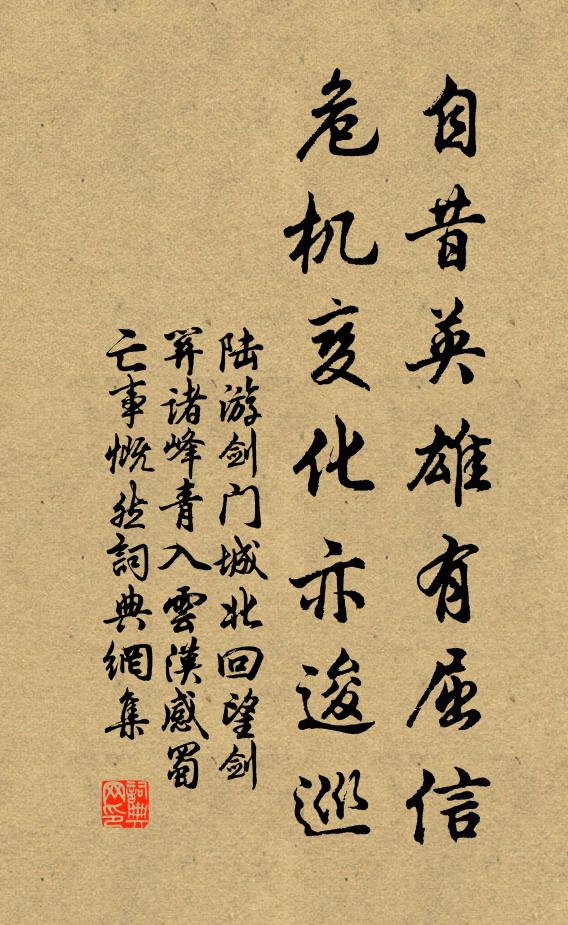 自昔英雄有屈信
危机变化亦逡巡
陆游剑门城北回望剑
関诸峰青入雲漢感蜀
亡事慨然詞典網集
詞典网印